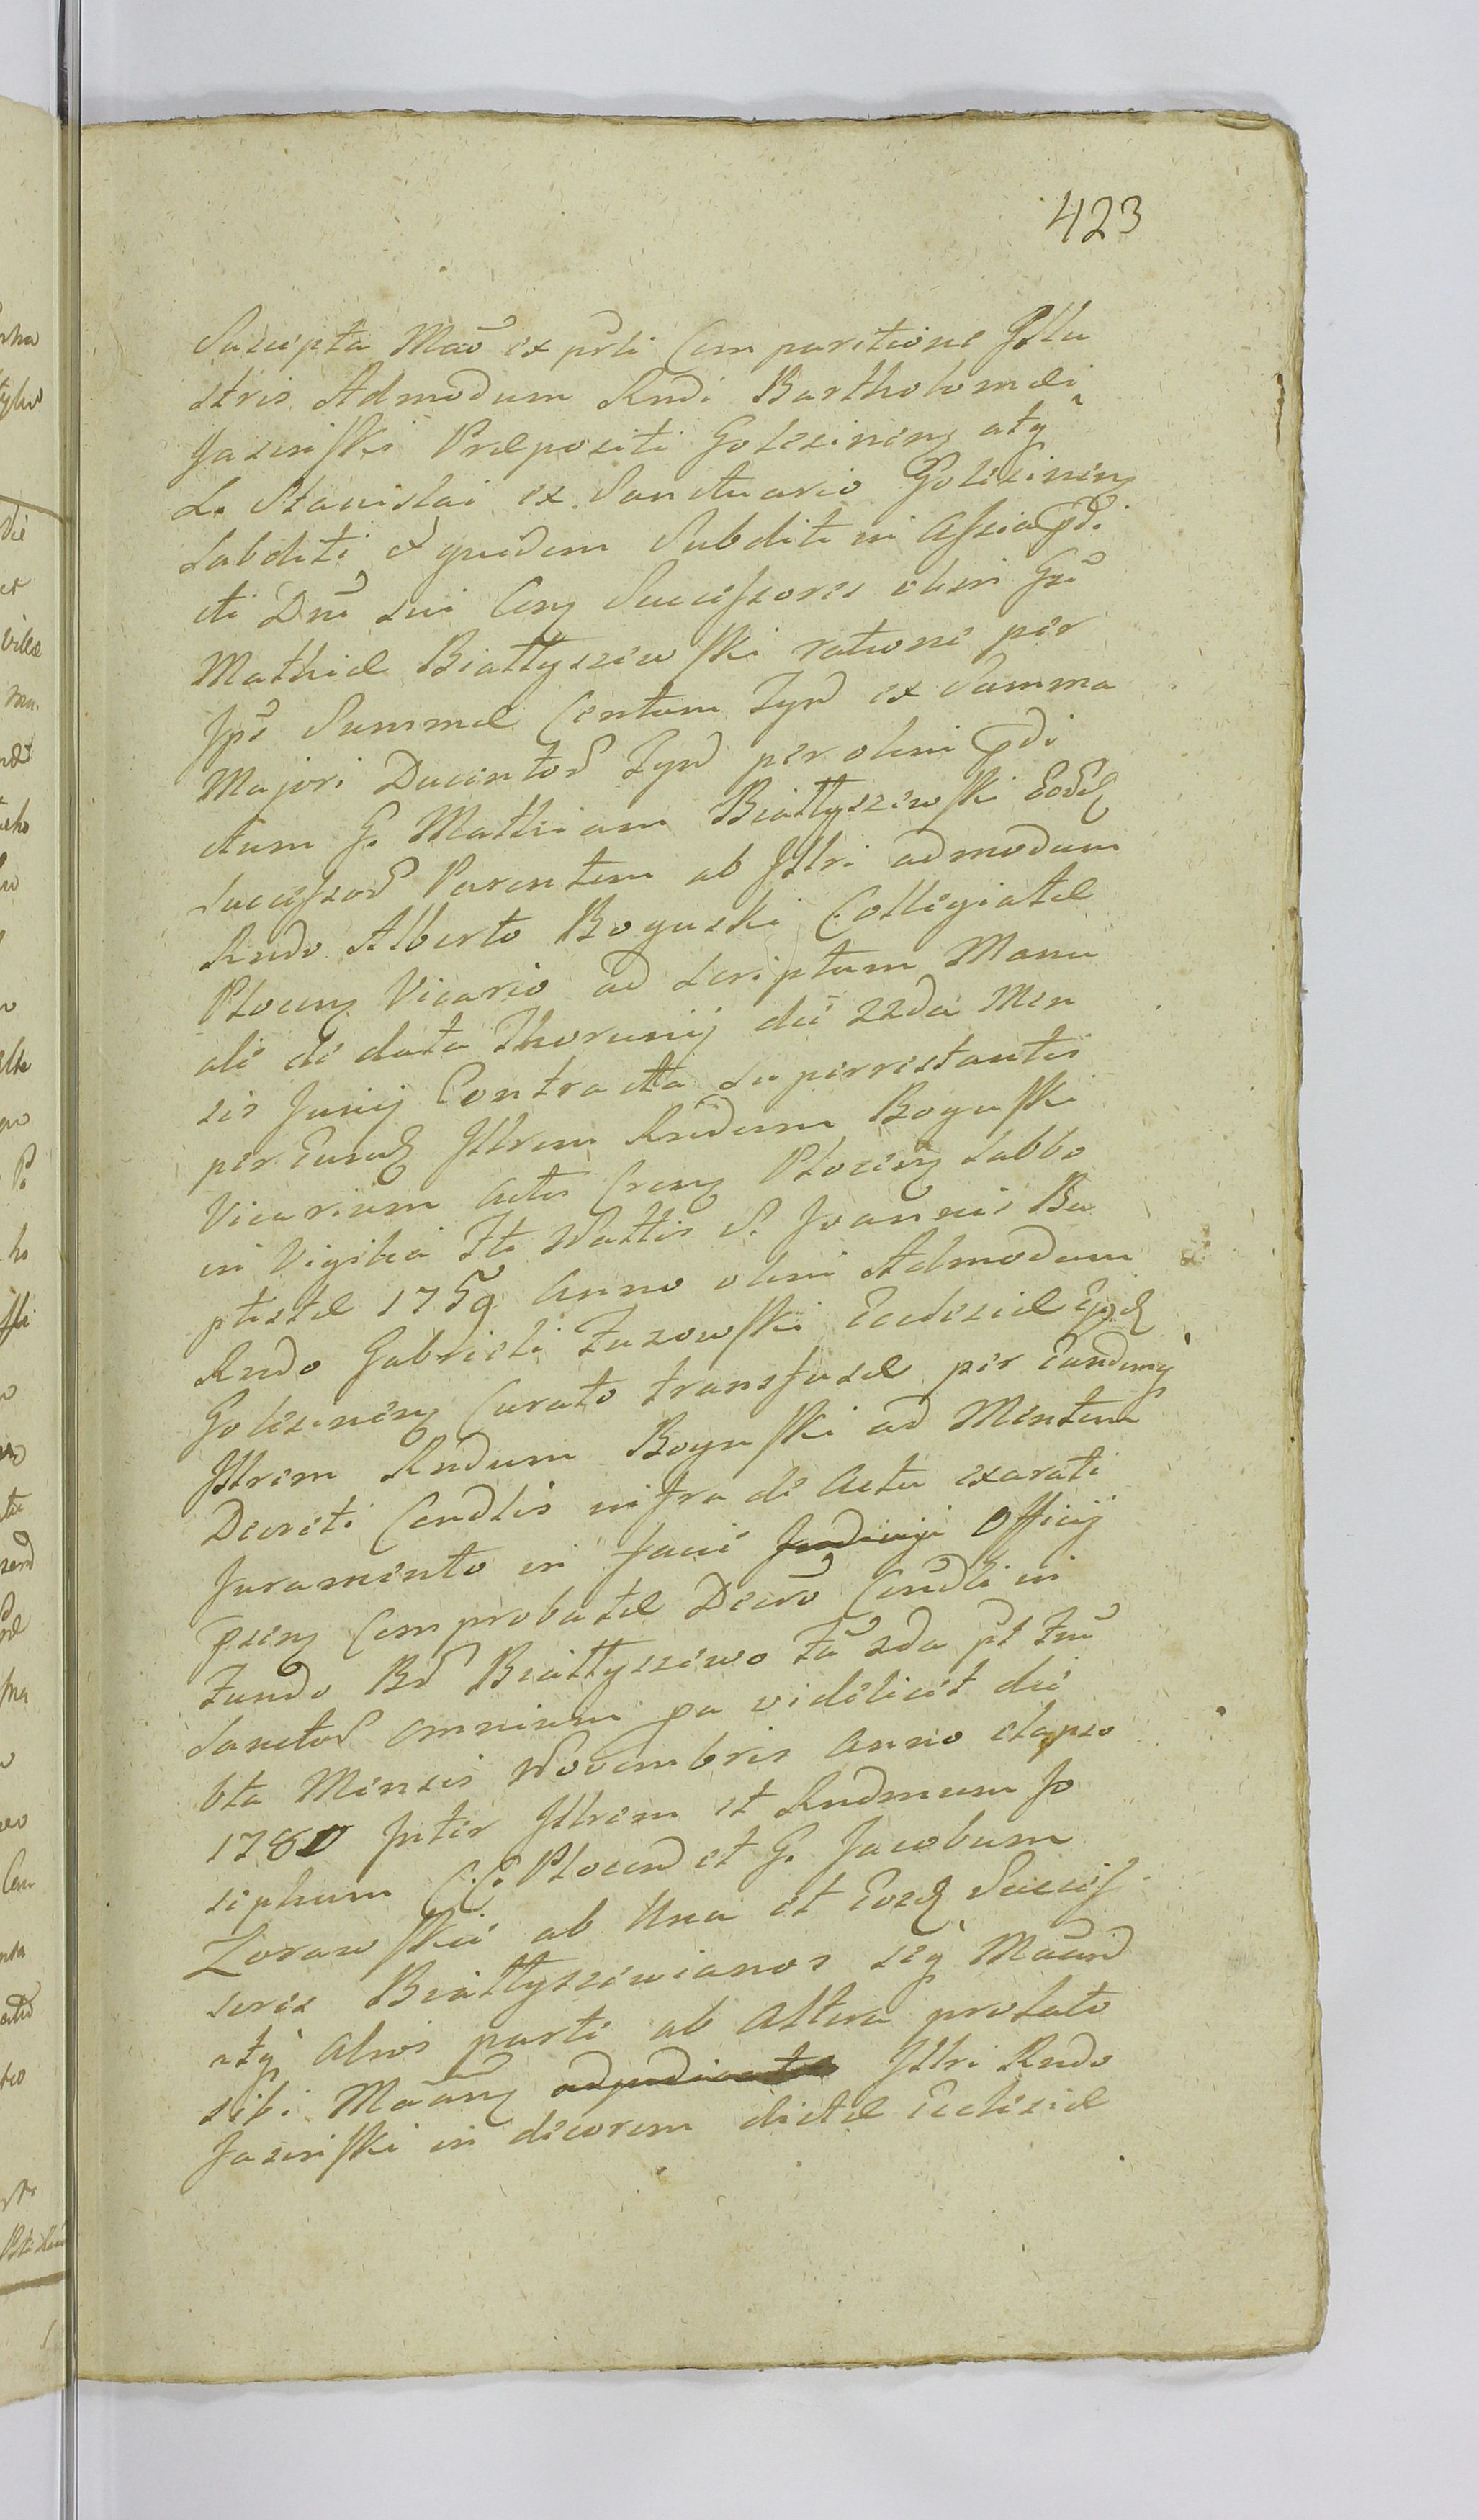 423
Suscepta Maō ex pŕti Comparitione Jllu
stris Admodum Rndi Bartholomæi
Jasinski Præpositi Golesinenz atq
L. Stanislai ex Sanctuario Golesinenz
Subditi et quidem Subditi in Assia pdi
cti Dnī sui Cenz Successores olim Gsī
Mathiæ Białłyszewski ratione per
Jps Summæ Centum Tynf ex Summa
Majori Ducentos Tynf per olim pdi
ctum G. Mathiam Białłyszewski Eosdz
Successos Parentem ab Jllri admodum
Rndo Alberto Boguski Collegiatæ
Plocenz Vicario ad Scriptum Manu
ale de data Thorunij die 22da Men
sis Junij Contracta superrestantis
per Eundz Jllrem Rndum Boguski
Vicarium Actis Crenz Plocenz Sabbo
in Vigilia Fti Nattis S. Joannis Ba
ptistæ 1759 Anno olim Admodum
Rndo Gabrieli Zuzowski Ecclesiæ
Golesinenz Curato transfusæ per Eundemq
Jllrem Rndum Boguski ad Mentem
Decreti Condlis infra de Actu exarati
Juramento in facie Officij
psenz Comprobatæ Decrō Condli in
Fundo Bs Białłyszewo Fā 2da pt Fm̄
Sanctos Omnium pa videlicet die
6ta Mensis Novembris Anno elapso
1780 Jnter Jllrem et Rndmum Jo
sephum C.C. Plocens et G. Jacobum
Zorawskie ab Una et Eosdz Succes
sores Białłyszewianos seq Maand
atq Alvos parte ab Altera prolato
sibi Maanz Jllri Rndo
Jasinski in decorem dictæ Ecclesiæ